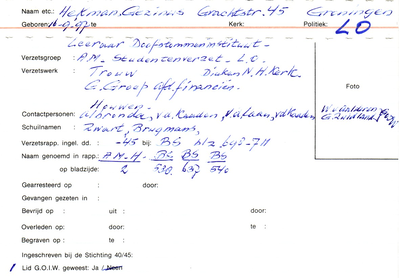 Naam etc.: Hekman. Gezinus Grachtstr. 45 Groningen
Geboren 16-9-97 te Kerk: Politiek: LO
Leeraar Doofstommeninstituut -
Verzetsgroep : A.N. Studentenverzet - L.O.
Verzetswerk : Trouw Diaken N.H. Kerk.
G. Groep afd. financiën.
Foto
Houwen -
Contactpersonen:
Schuilnamen : Zwart, Brugmans,
Verzetsrapp. ingel. dd. : -45 bij: BS blz 698-711
Naam genoemd in rapp.: A.N.H. BS BS BS
op bladzijde: 2 530 637 540
Gearresteerd op : door:
Gevangen gezeten in :
Bevrijd op : uit : door:
Overleden op: door: te :
Begraven op : te :
Ingeschreven bij de Stichting 40/45:
Lid G.O.I.W. geweest: Ja / Neen